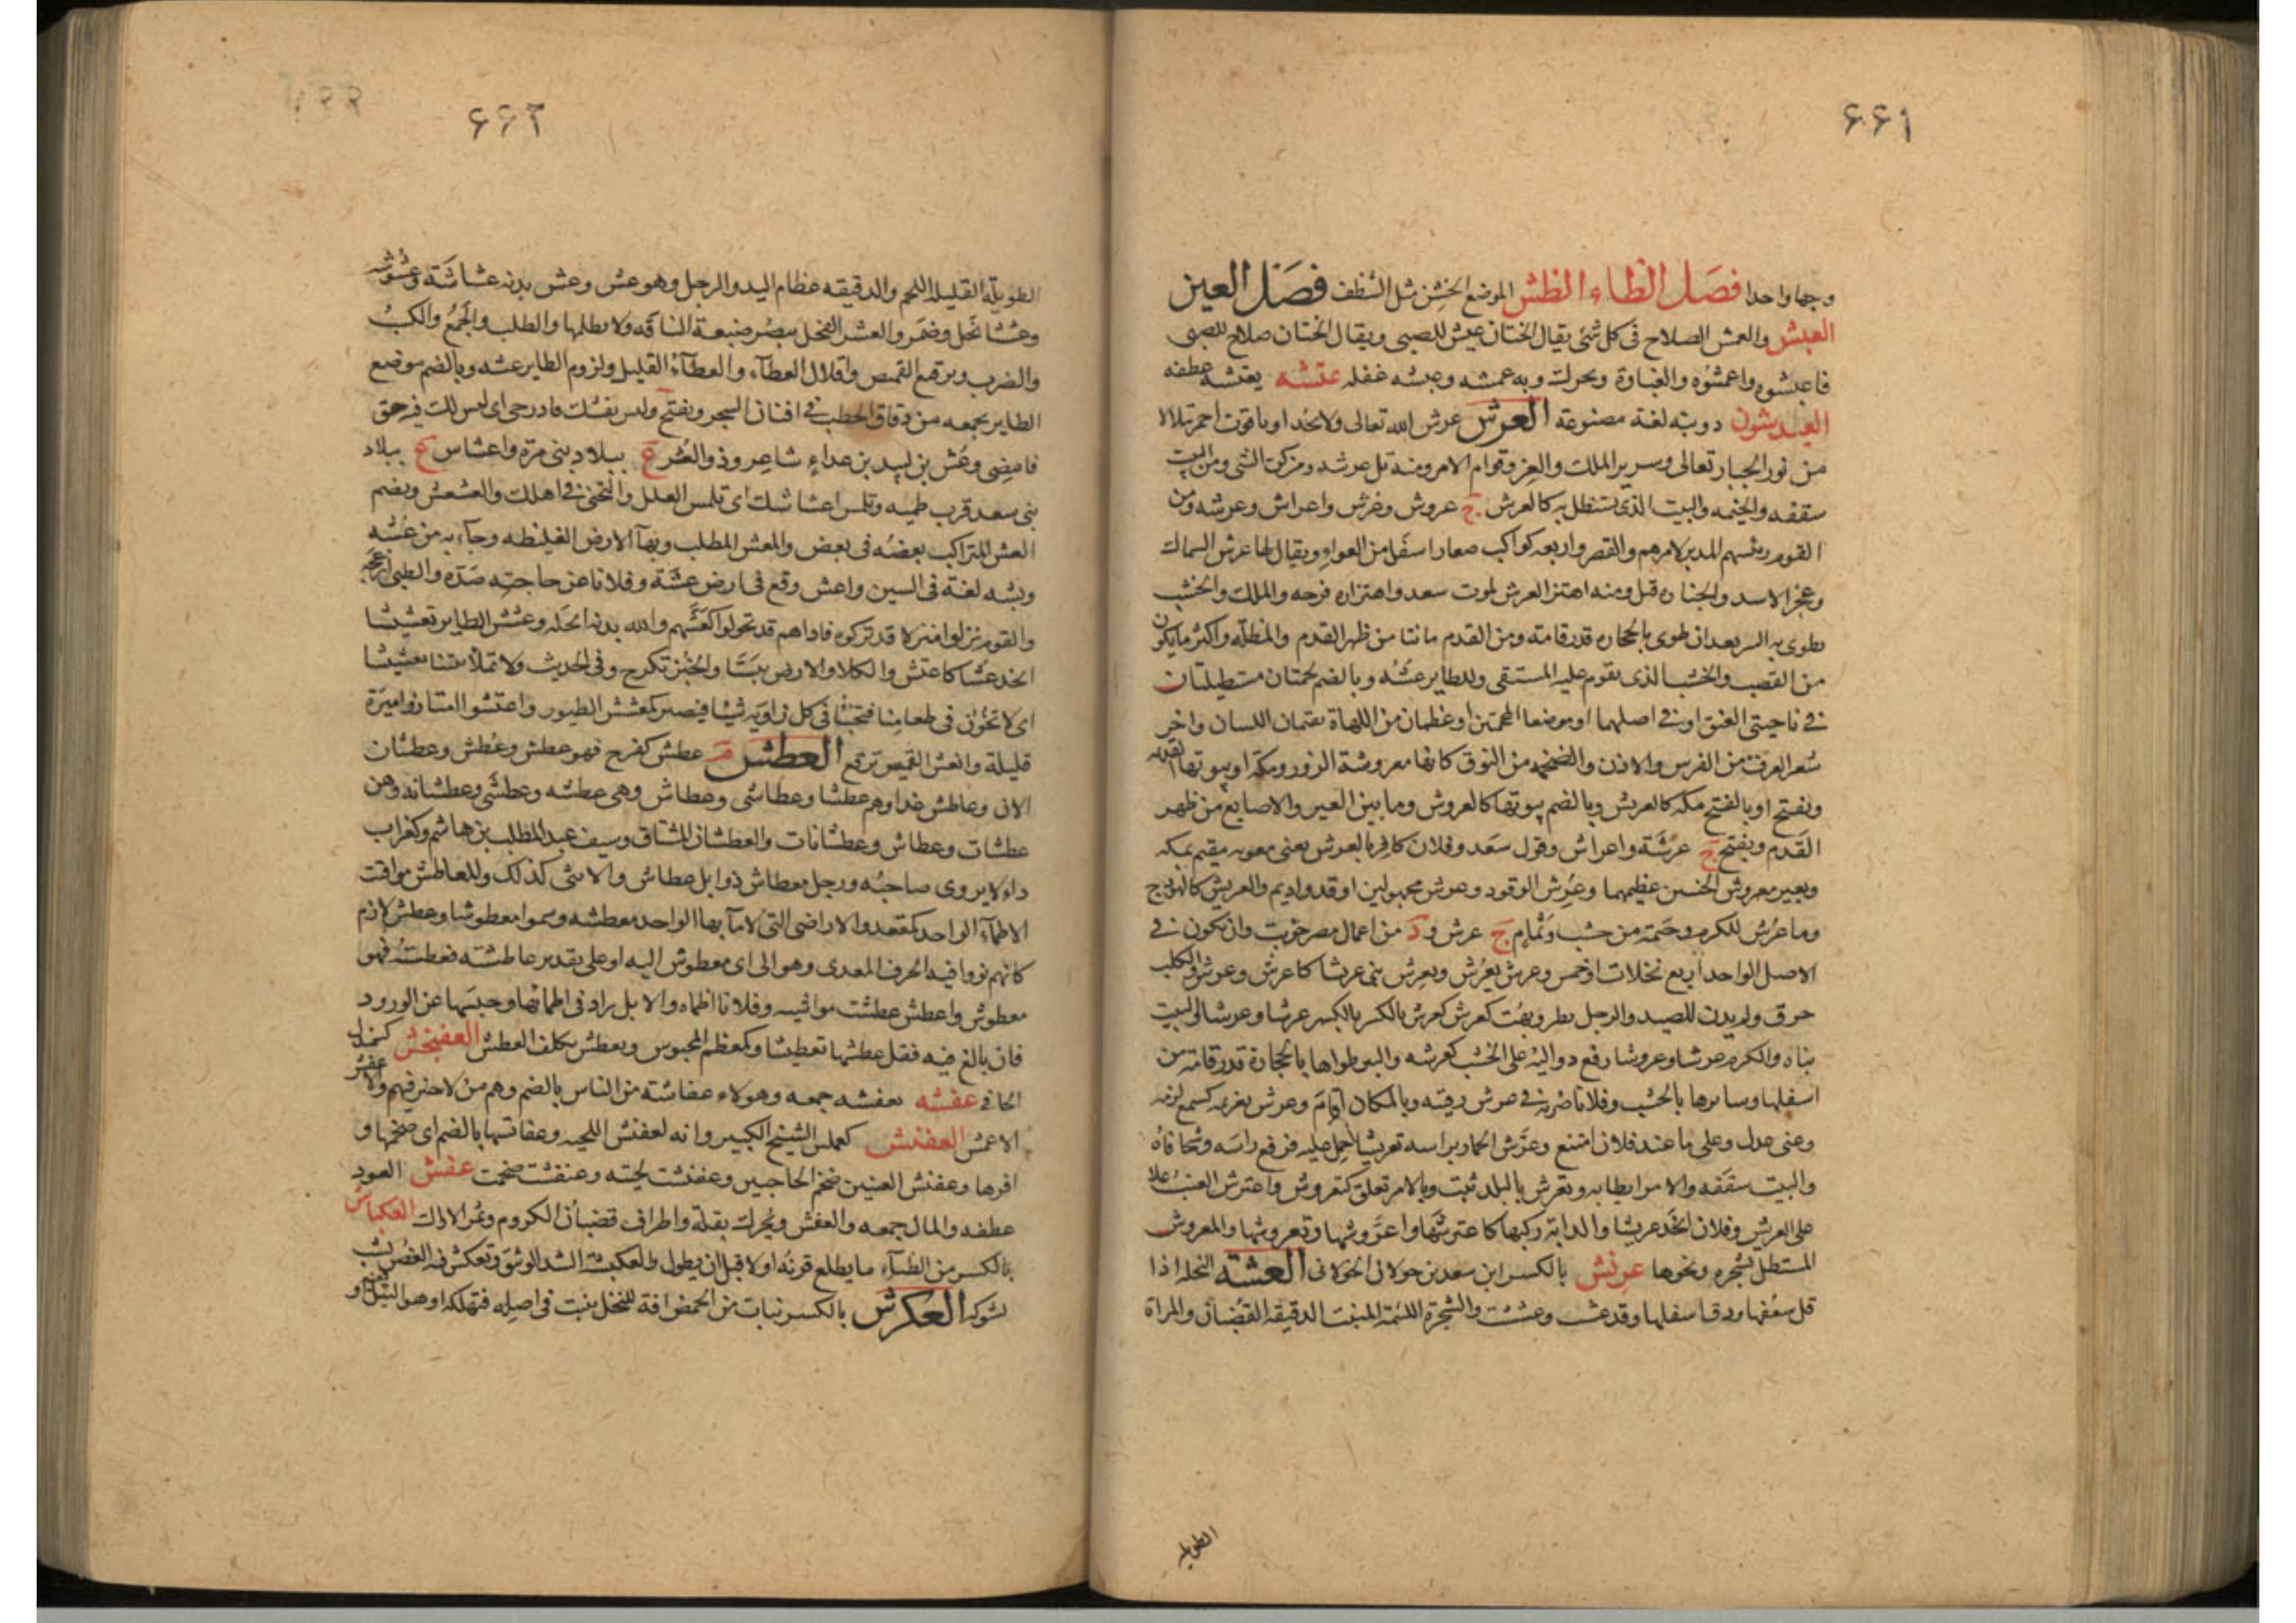 ٦٦١
وجها واحدا فصل الظاء الظش الموضع الخشن مثل الشظف فصل العين
العبش والعمش الصلاح فى كل شئ يقال الختان عبش للصبى ويقال الختان صلاح للصبى
فاعبشوه واعمشوه والغباوة ويحرك وبه عمشه وعبشه غفله عتشه يعتشه عطفه
العيدشون دويبة لغة مصنوعة العرش عرش الله تعالى ولا يحد او ياقوت احمر يتلالا
من نور الجبار تعالى وسرير الملك والعز وقوام الامر ومنه ثل عرشه وركن الشى ومن البيت
سقفه والخيمه والبيت الذى يستظل به كالعرش ج عروش وعرش واعراش وعرشه ومن
القوم رئيسهم المدبر لامرهم والقصر واربعه كواكب صغار اسفل من العواء ويقال لها عرش السماك
وعجز الاسد والجنازه قيل ومنه اهتز العرش لموت سعد واهتزازه فرحه والملك والخشب
يطوى به البير بعد ان يطوى بالحجاره قدر قامته ومن القدم ما نتا من ظهر القدم والمظله واكثر ما يكون
من القصب والخشب الذى يقوم عليه المستقى وللطاير عشه وبالضم لحمتان مستطيلتان
فى ناحيتى العنق او فى اصلهما او موضعا المحجمتين او عظمان من اللهاة يقيمان اللسان واخر
شعر العرف من الفرس والاذن والضخمه من النوق كانها معروشة الزور ومكة او بيوتها القديمه
ويفتح او بالفتح مكه كالعريش وبالضم بيوتها كالعروش وما بين العير والاصابع من ظهر
القدم ويفتح ج عرشة واعراش وقول سعد وفلان كافر بالعرش يعنى معويه مقيم بمكه
وبعير معروش الجنبين عظيمهما وعرش الوقود وعرش مجهولين اوقد واديم والعريش كالهودج
وما عرش للكرم وخيمة من خشب وثمام ج عرش ود من اعمال مصر خربت وان يكون فى
الاصل الواحد اربع نخلات او خمس وعرش يعرش ويعرش بنى عريشا كاعرش وعرش والكلب
خرق ولم يدن للصيد والرجل بطر وبهت كعرش كعرش بالكسر عرشا وعرشا والبيت
بناه والكرم عرشا وعروشا رفع دواليه على الخشب كعرشه والبير طواها بالحجارة قدر قامة من
اسفلها وسايرها بالخشب وفلانا ضربه فى عرش رقبته وبالمكان اقام وعرش بغريمه كسمع لزمه
وعنى عدل وعلى ما عند فلان امتنع وعرش الحمار براسه تعريشا حمل عليه فرفع راسه وشحا فاه
والبيت سقفه والامر ابطا به وتعرش بالبلد ثبت وبالامر تعلق كتعروش واعترش العنب علا
على العريش وفلان اتخذ عريشا والدابة ركبها كاعترشها واعروشها وتعروشها والمعروش
المستظل بشجره ونحوها عرنش بالكسر ابن سعد بن خولان الخولانى العشة النخله اذا
قل سعفها ودق اسفلها وقد عشت وعششت والشجرة اللئيمة المنبت الدقيقه القضبان والمراة
الطويله
٦٦٢
الطويلة القليله اللحم والدقيقه عظام اليد والرجل وهو عش وعش بدنه عشاشة وعشوشه
وعششا نحل وضمر والعش الفحل يبصر ضبعة الناقه ولا يظلمها والطلب والجمع والكسب
والضرب وترقيع القميص واقلال العطاء والعطاء القليل ولزوم الطاير عشه وبالضم موضع
الطاير يجمعه من دقاق الحطب فى افنان الشجر ويفتح وليس بعشك فادرجى اى ليس لك فيه حق
فامضى وعش بن لبيد بن عداء شاعر وذو العش ع ببلاد بنى مرة واعشاش ع ببلاد
بنى سعد قرب طميه وتلمس اعشاشك اى تلمس العلل والتجنى فى اهلك والعشعش ويضم
العش المتراكب بعضه فى بعض والمعش المطلب وبهاء الارض الغليظه وجاء به من عشه
وبشه لغة فى السين واعش وقع فى ارض عشة وفلانا عن حاجته صده والظبى ازعجه
والقوم نزلوا منزلا قد تركوه فاذاهم قد تحولوا كعشهم والله بدنه انحله وعشش الطاير تعشيشا
اتخذ عشا كاعتش والكلا والارض يبسا والخبز تكرج وفى الحديث ولا تملا بيتنا تعشيشا
اى لا تخوننا فى طعامنا فتخبا فى كل زاوية شيئا فيصير كمعشش الطيور واعتشوا امتاروا ميرة
قليلة وانعش القميص ترقع العطش م عطش كفرح فهو عطش وعطش وعطشان
الان وعاطش غدا وهم عطشى وعطاشى وعطاش وهى عطشه وعطشى وعطشانه وهن
عطشات وعطاش وعطشانات والعطشان المشتاق وسيف عبد المطلب بن هاشم وكغراب
داء لا يروى صاحبه ورجل معطاش ذو ابل عطاش والانثى كذلك والمعاطش مواقت
الاظماء الواحد كمقعد والاراضى التى لا ماء بها الواحد معطشه وسموا معطوشا وعطش لازم
كانهم نووا فيه الحرف المعدى وهو الى اى معطوش اليه او على تقدير عاطشته فعطشته فهو
معطوش واعطش عطشت مواشيه وفلانا اظماه والابل زاد فى اظمائها وحبسها عن الورود
فان بالغ فيه فقل عطشها تعطيشا وكمعظم المحبوس وتعطش تكلف العطش العفنجش كسمندل
الجافى عفشه يعفشه جمعه وهولاء عفاشة من الناس بالضم وهم من لا خير فيهم ولا عفش
الاعمش العفنش كعملس الشيخ الكبير وانه لعفنش اللحيه وعفانشها بالضم اى ضخمها و
افرها وعفنش العينين ضخم الحاجبين وعفنشت لحيته وعنفشت ضخمت عقش العود
عطفه والمال جمعه والعقش ويحرك بقلة واطراف قضبان الكروم وثمر الاراك العكباش
بالكسر من الظباء ما يطلع قرنه اولا قبل ان يطول والعكبشة الشد الوثيق وتعكبش فيه الغصن نشب
بشوكه العكرش بالكسر نبات من الحمض افة للنخل ينبت فى اصله فتهلكه او هو الثيل او